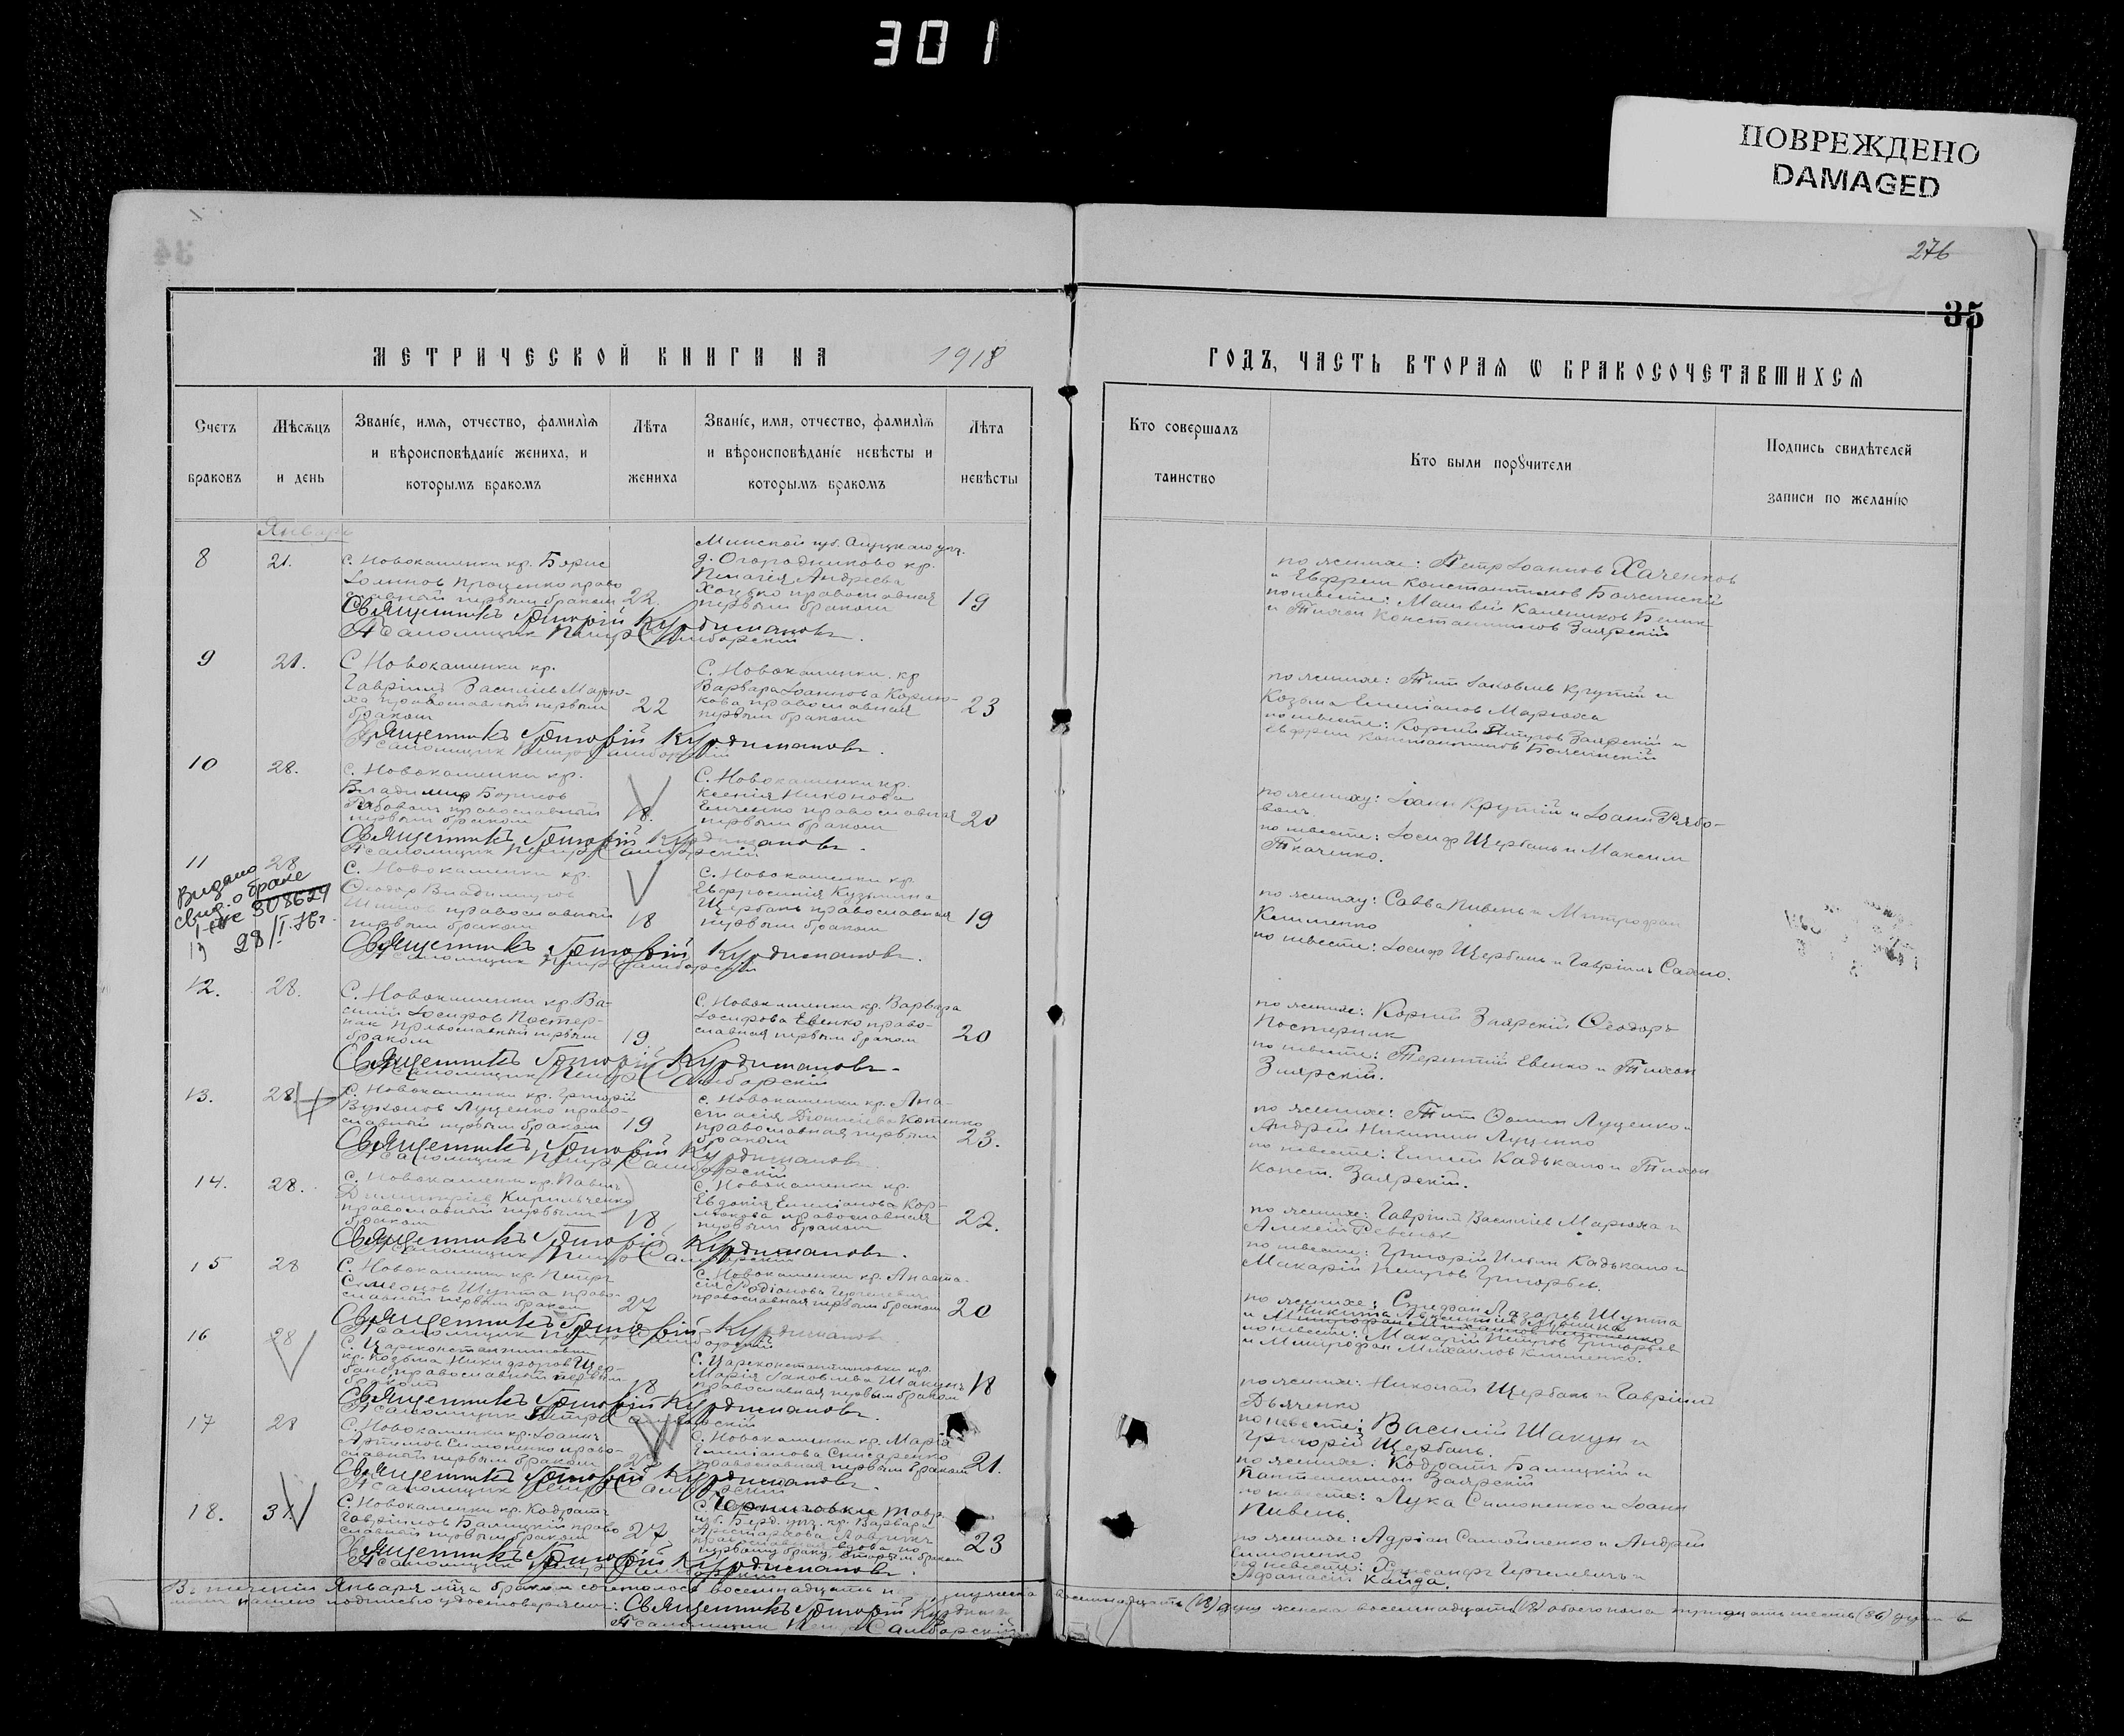 301
ПОВРЕЖДЕНО
DAMAGED
276
35
МЕТРИЧЕСКОЙ КНИГИ НА 1918
ГОДЪ, ЧАСТЬ ВТОРАЯ Ѡ БРАКОСОЧЕТАВШИХСЯ
Счетъ браковъ
Мѣсяцъ и день
Званіе, имя, отчество, фамилія
и вѣроисповѣданіе жениха, и
которымъ бракомъ
Лѣта жениха
Званіе, имя, отчество, фамилія
и вѣроисповѣданіе невѣсты и
которымъ бракомъ
Лѣта невѣсты
Кто совершалъ
таинство
Кто были порꙋчители
Подпись свидѣтелей
записи по желанію
Январь
8
21.
С. Новокаменки кр. Борис
Іоаннов Проценко право
славный первым браком 22
Минской губ.
д. Огородниково кр.
Пелагія Андреева
православная
первым браком 19
Священникъ Григорій Курдиманов.
Псаломщик Петр Самборскій
по женихе: Петр Іоаннов Хаченков
и Евфрем Константинов
по невесте: Матвей
и Тихон Константинов Заярскій
9
21.
С. Новокаменки кр.
Гавріил Василіев Марю-
ха православный первым
браком 22
С. Новокаменки кр
Варвара Іоаннова
кова православная
первым браком 23
Священникъ Григорій Курдиманов.
Псаломщик Петр Самборскій
по женихе: Тит Іаковлев Крутій и
Козьма Емеліанов Марюха
по невесте: Корній Петров Заярскій и
Евфрем Константинов
10
28.
С. Новокаменки кр.
Владимир Борисов
Рябовол православный
первым браком 18.
С. Новокаменки кр.
Ксенія Никонова
православная
первым браком 20
Священникъ Григорій Курдиманов.
Псаломщик Петр Самборскій
по жениху: Іоанн Крутій и Іоанн Рябо-
вол.
по невесте: Іосиф Щербань и Максим
Ткаченко.
11
28
Видано
свид. о браке
308629
С. Новокаменки кр.
Феодор Владимиров
православный
первым браком 18
С. Новокаменки кр
Евфросинія Кузьмина
Щербань православная
первым браком 19
Священникъ Григорій Курдиманов.
Псаломщик Петр Самборскій
по жениху: Савва Пивень и Митрофан
Клименко
по невесте: Іосиф Щербань и Гавріил
12.
28.
С. Новокаменки кр. Ва-
силій Іосифов Постер-
нак православный первым
браком 19
С. Новокаменки кр. Варвара
Іосифова Евенко право-
славная первым браком 20
Священникъ Григорій Курдиманов.
Псаломщик Петр Самборскій
по женихе: Корній Заярскій Феодор
Постернак
по невесте: Терентій Евенко и Тихон
Заярскій.
13.
28.
С. Новокаменки кр. Григорій
Луценко право-
славный первым браком 19
С. Новокаменки кр. Ана-
стасія Діонисіева Котенко
православная первым
браком 23.
Священникъ Григорій Курдиманов.
Псаломщик Петр Самборскій
по женихе: Тит Фомин Луценко и
Андрей Никитин Луценко
по невесте: Кадькало и Тихон
Конст. Заярскій.
14.
28.
С. Новокаменки кр. Павел
Димитріев Кирильченко
православный первым
браком 18
С. Новокаменки кр.
Евдокія Емеліанова Кор-
православная
первым браком 22.
Священникъ Григорій Курдиманов.
Псаломщик Петр Самборскій
по женихе: Гавріил Василіев Марюха и
Алексей Ревенок
по невесте: Григорій Кадькало и
Макарій Петров Григорьев.
15
28
С. Новокаменки кр. Петр
Симеонов Шупта право-
славный первым браком 27
С. Новокаменки кр. Анаста-
сія Родіонова
православная первым браком 20
Священникъ Григорій Курдиманов
Псаломщик Петр Самборскій
по женихе: Стефан Лазарев Шупта
по невесте: Макарій Петров Григорьев
и Митрофан Михаилов Клименко.
16
28
С. Цареконстантиновки
кр. Козьма Никифоров Щер-
бань православный первым
браком 18
С. Цареконстантиновки кр.
Марія Іаковлева Шакун
православная первым браком 18
Священникъ Григорій Курдиманов.
Псаломщик Петр Самборскій
по женихе: Николай Щербань и Гавріил
Дьяченко
по невесте: Василій Шакун и
Григорій Щербань.
17
28
С. Новокаменки кр. Іоанн
Артемов Симоненко право-
славный первым браком
С. Новокаменки кр. Марія
Емеліанова
православная первым браком 21.
Священникъ Григорій Курдиманов.
Псаломщик Петр Самборскій
по женихе: Кодрат Балицкій и
Пантелеимон Заярскій
по невесте: Лука Симоненко и Іоанн
Пивень.
18.
31
С. Новокаменки кр. Кодрат
Гавріилов Балицкій право
славный первым браком 27
С. Черниговки Тавр.
губ. Берд. уез. кр. Варвара
Аристархова
православная вдова по
первому браку, вторым браком 23
Священникъ Григорій Курдиманов.
Псаломщик Петр Самборскій
по женихе: Адріан Самойленко и Андрей
Симоненко
по невесте: Александр и
Афанасій Кайда.
В теченіи Января м-ца браком сочеталось восемнадцать
восемнадцать (18) душ женска восемнадцать (18) обоего пола тридцать шесть (36) душ в
чем нашею подписью удостоверяем: Священникъ Григорій Курдиманов
Псаломщик Петр Самборскій